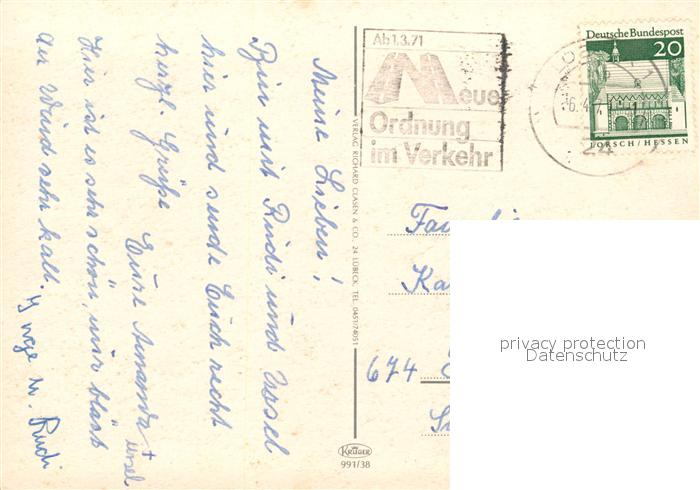 Meine Lieben!
Bin mit Rudi und Ursel
hier und sende Euch recht
herzl. Grüße
Eure Amanda +
Ursel
Hier ist es sehr schön, nur bläst
der Wind sehr kalt.
u. Rudi
Ab 1.3.71
Neue
Ordnung
im Verkehr
24
Deutsche Bundespost
20
LORSCH / HESSEN
VERLAG RICHARD CLASEN & CO., 24 LÜBECK, TEL. 0451/74051
KRÜGER
991/38
Fa
Ka
674
privacy protection
Datenschutz